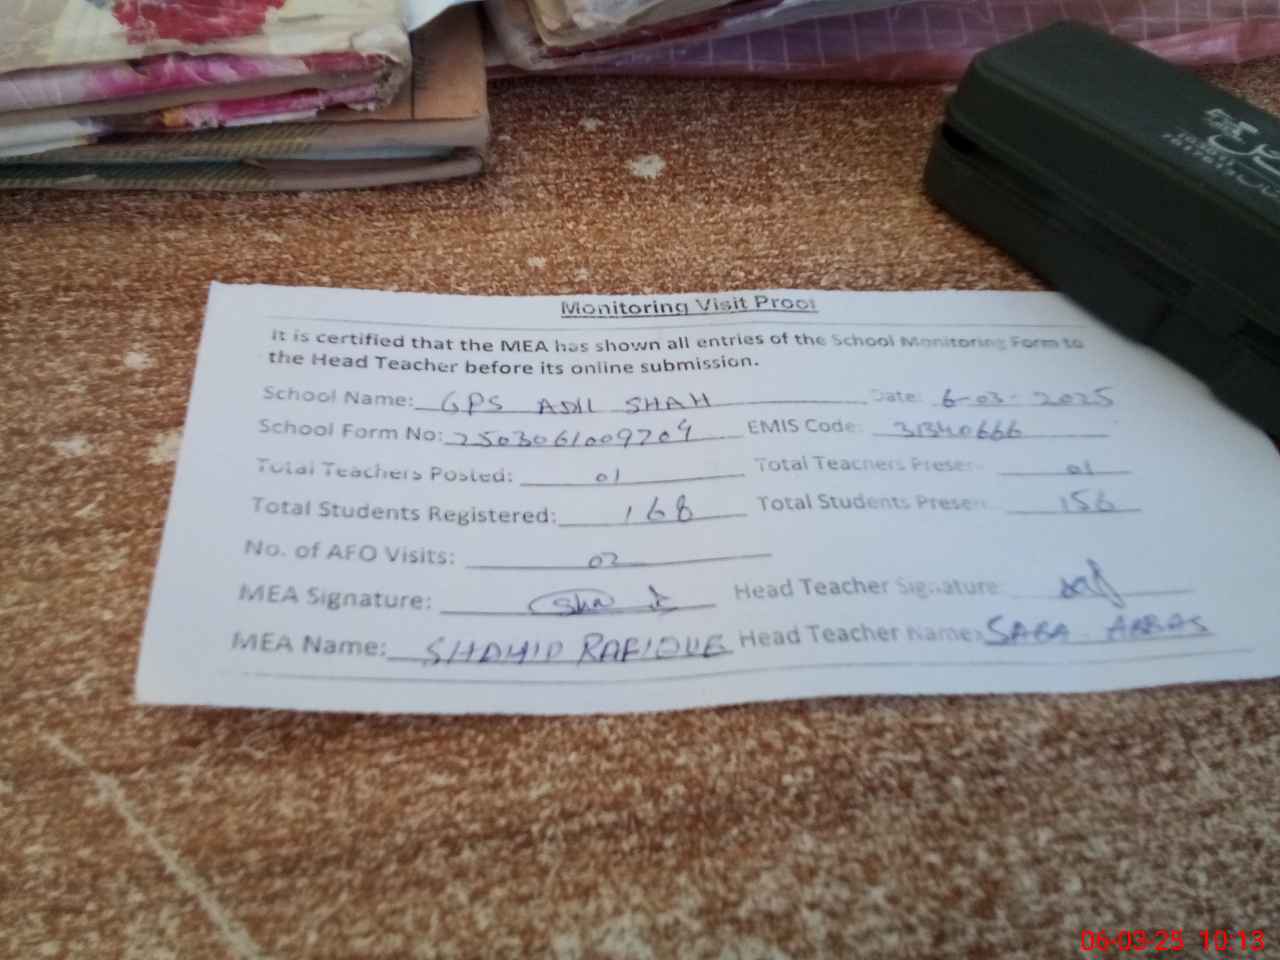 Monitoring Visit Proof
It is certified that the MEA has shown all entries of the School Monitoring Form to
the Head Teacher before its online submission.
School Name: GPS ADIL SHAH Date: 6-03-2025
School Form No: 2503061009204 EMIS Code: 31340666
Total Teachers Posted: 01 Total Teachers Present: 01
Total Students Registered: 168 Total Students Present: 156
No. of AFO Visits: 02
MEA Signature: Head Teacher Signature:
MEA Name: SHAHID RAFIQUE Head Teacher Name: SABA ABBAS
06-03-25 10:13